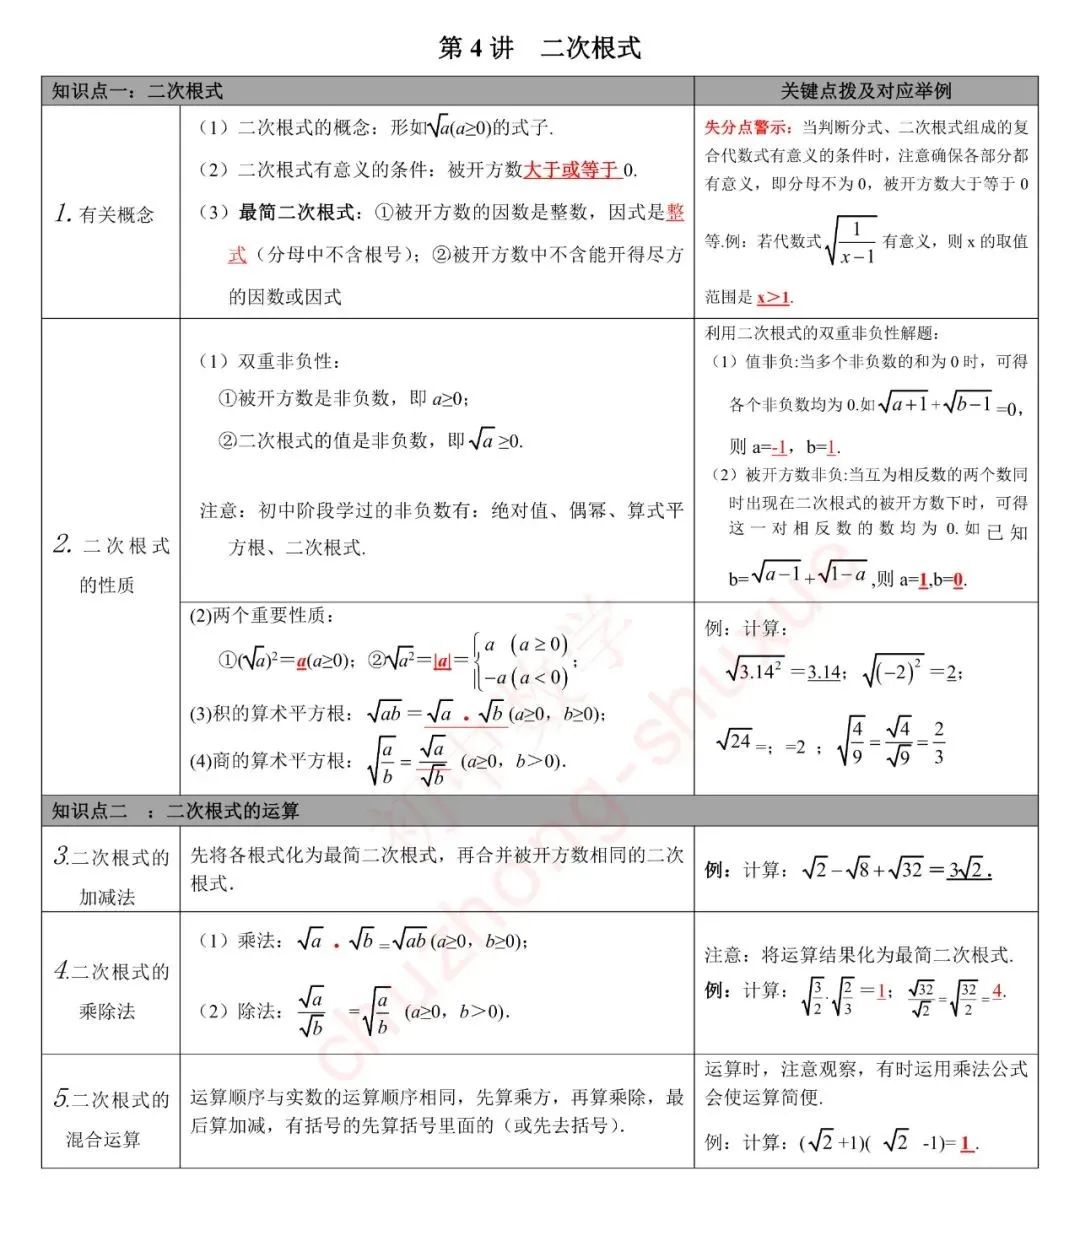 第 4 讲　二次根式
知识点一：二次根式
关键点拨及对应举例
1. 有关概念
（1）二次根式的概念：形如√a(a≥0)的式子.
（2）二次根式有意义的条件：被开方数大于或等于 0.
（3）最简二次根式：①被开方数的因数是整数，因式是整
式（分母中不含根号）；②被开方数中不含能开得尽方
的因数或因式
失分点警示：当判断分式、二次根式组成的复
合代数式有意义的条件时，注意确保各部分都
有意义，即分母不为 0，被开方数大于等于 0
等.例：若代数式√(1/(x−1)) 有意义，则 x 的取值
范围是 x＞1.
2. 二次根式
的性质
（1）双重非负性：
①被开方数是非负数，即 a≥0；
②二次根式的值是非负数，即√a ≥0.
注意：初中阶段学过的非负数有：绝对值、偶幂、算式平
方根、二次根式.
利用二次根式的双重非负性解题：
（1）值非负:当多个非负数的和为 0 时，可得
各个非负数均为 0.如√(a+1)+√(b−1)=0，
则 a=-1，b=1.
（2）被开方数非负:当互为相反数的两个数同
时出现在二次根式的被开方数下时，可得
这一对相反数的数均为 0.如已知
b=√(a−1)+√(1−a),则 a=1,b=0.
(2)两个重要性质：
①(√a)²＝a(a≥0)；②√a²＝|a|＝{a (a≥0) −a (a<0)；
(3)积的算术平方根：√ab＝√a·√b (a≥0，b≥0)；
(4)商的算术平方根：√(a/b)=√a/√b (a≥0，b＞0)．
例：计算：
√3.14²＝3.14；√(−2)²＝2；
√24=；=2 ；√(4/9)=√4/√9=2/3
知识点二　：二次根式的运算
3.二次根式的
加减法
先将各根式化为最简二次根式，再合并被开方数相同的二次
根式．
例：计算：√2−√8+√32＝3√2．
4.二次根式的
乘除法
（1）乘法：√a·√b=√ab(a≥0，b≥0)；
（2）除法：√a/√b =√(a/b) (a≥0，b＞0)．
注意：将运算结果化为最简二次根式.
例：计算：√(3/2)·√(2/3)＝1；√32/√2=√(32/2)=4.
5.二次根式的
混合运算
运算顺序与实数的运算顺序相同，先算乘方，再算乘除，最
后算加减，有括号的先算括号里面的（或先去括号）．
运算时，注意观察，有时运用乘法公式
会使运算简便.
例：计算：(√2+1)( √2 -1)= 1 .
初中数学
chuzhong-shuxue